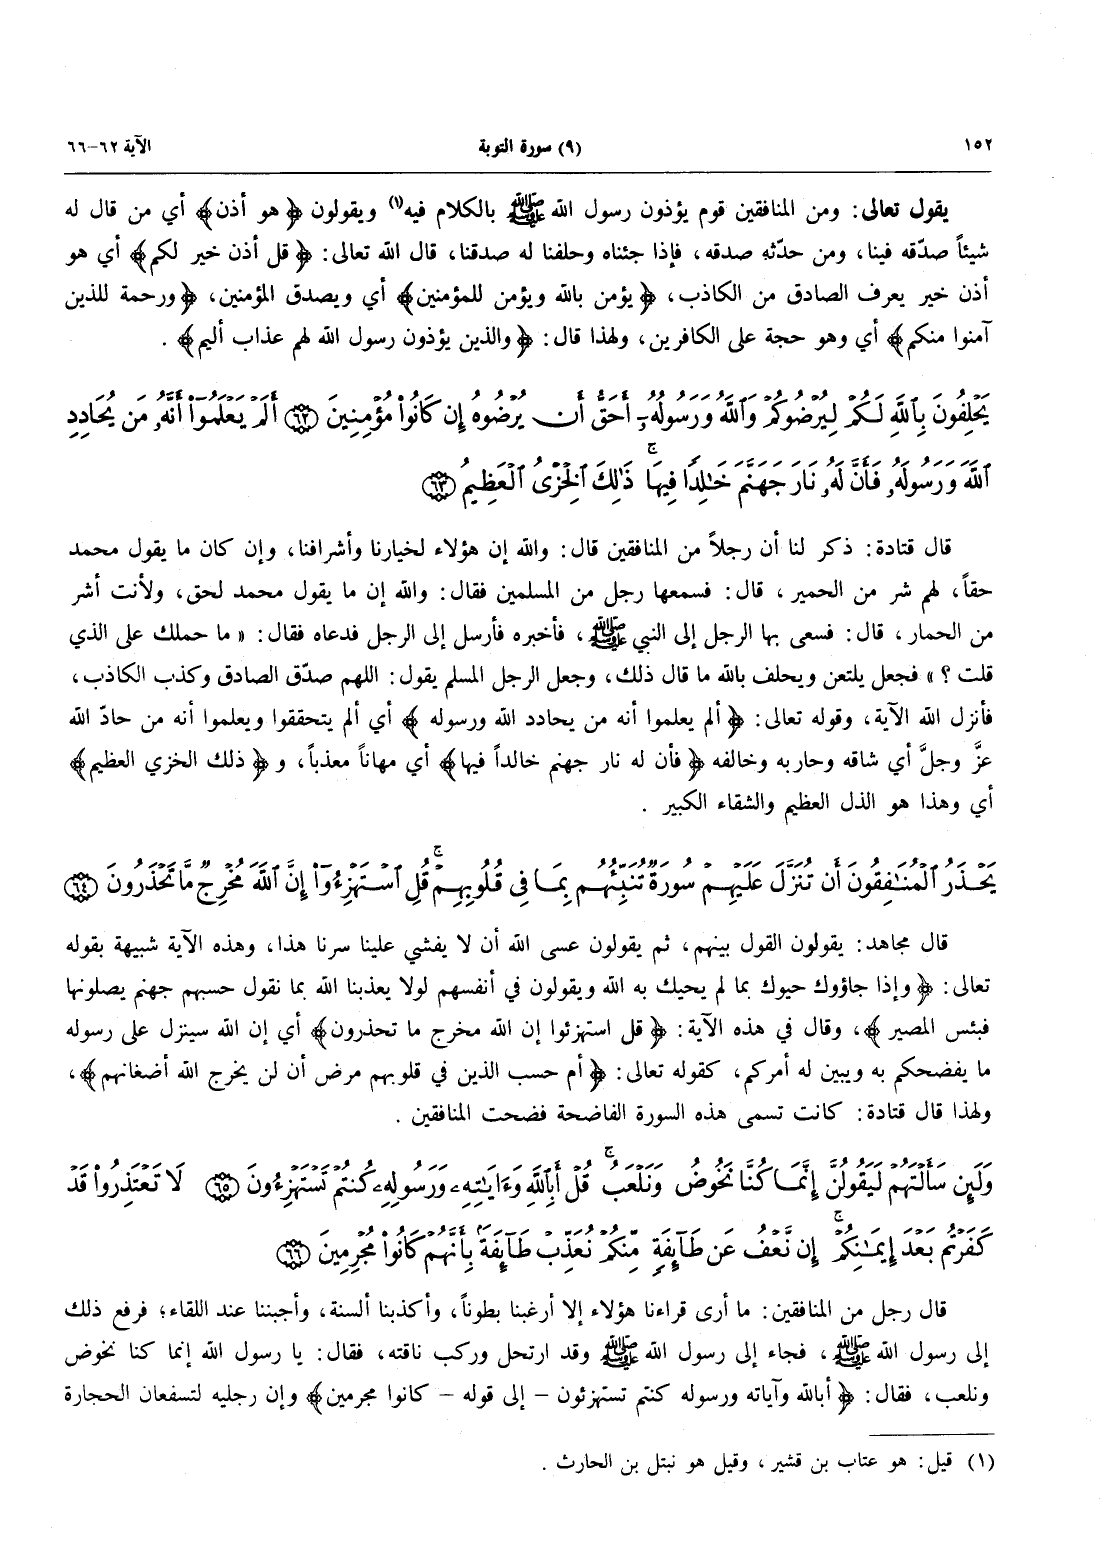 ١٥٢ (٩) سورة التوبة الآية ٦٢-٦٦
يقول تعالى: ومن المنافقين قوم يؤذون رسول الله ﷺ بالكلام فيه(١) ويقولون ﴿هو أذن﴾ أي من قال له
شيئاً صدّقه فينا، ومن حدّثه صدقه، فإذا جئناه وحلفنا له صدقنا، قال الله تعالى: ﴿قل أذن خير لكم﴾ أي هو
أذن خير يعرف الصادق من الكاذب، ﴿يؤمن بالله ويؤمن للمؤمنين﴾ أي ويصدق المؤمنين، ﴿ورحمة للذين
آمنوا منكم﴾ أي وهو حجة على الكافرين، ولهذا قال: ﴿والذين يؤذون رسول الله لهم عذاب أليم﴾ .
يَحْلِفُونَ بِٱللَّهِ لَكُمْ لِيُرْضُوكُمْ وَٱللَّهُ وَرَسُولُهُۥٓ أَحَقُّ أَن يُرْضُوهُ إِن كَانُوا۟ مُؤْمِنِينَ ﴿٦٢﴾ أَلَمْ يَعْلَمُوٓا۟ أَنَّهُۥ مَن يُحَادِدِ
ٱللَّهَ وَرَسُولَهُۥ فَأَنَّ لَهُۥ نَارَ جَهَنَّمَ خَٰلِدًا فِيهَا ۚ ذَٰلِكَ ٱلْخِزْىُ ٱلْعَظِيمُ ﴿٦٣﴾
قال قتادة: ذكر لنا أن رجلاً من المنافقين قال: والله إن هؤلاء لخيارنا وأشرافنا، وإن كان ما يقول محمد
حقاً، لهم شر من الحمير، قال: فسمعها رجل من المسلمين فقال: والله إن ما يقول محمد لحق، ولأنت أشر
من الحمار، قال: فسعى بها الرجل إلى النبي ﷺ، فأخبره فأرسل إلى الرجل فدعاه فقال: « ما حملك على الذي
قلت ؟ » فجعل يلتعن ويحلف بالله ما قال ذلك، وجعل الرجل المسلم يقول: اللهم صدّق الصادق وكذب الكاذب،
فأنزل الله الآية، وقوله تعالى: ﴿ألم يعلموا أنه من يحادد الله ورسوله ﴾ أي ألم يتحققوا ويعلموا أنه من حادّ الله
عزَّ وجلَّ أي شاقه وحاربه وخالفه ﴿فأن له نار جهنم خالداً فيها﴾ أي مهاناً معذباً، و ﴿ذلك الخزي العظيم﴾
أي وهذا هو الذل العظيم والشقاء الكبير .
يَحْذَرُ ٱلْمُنَٰفِقُونَ أَن تُنَزَّلَ عَلَيْهِمْ سُورَةٌ تُنَبِّئُهُم بِمَا فِى قُلُوبِهِمْ ۚ قُلِ ٱسْتَهْزِءُوٓا۟ إِنَّ ٱللَّهَ مُخْرِجٌ مَّا تَحْذَرُونَ ﴿٦٤﴾
قال مجاهد: يقولون القول بينهم، ثم يقولون عسى الله أن لا يفشي علينا سرنا هذا، وهذه الآية شبيهة بقوله
تعالى: ﴿وإذا جاؤوك حيوك بما لم يحيك به الله ويقولون في أنفسهم لولا يعذبنا الله بما نقول حسبهم جهنم يصلونها
فبئس المصير ﴾، وقال في هذه الآية: ﴿قل استهزئوا إن الله مخرج ما تحذرون﴾ أي إن الله سينزل على رسوله
ما يفضحكم به ويبين له أمركم، كقوله تعالى: ﴿أم حسب الذين في قلوبهم مرض أن لن يخرج الله أضغانهم﴾،
ولهذا قال قتادة: كانت تسمى هذه السورة الفاضحة فضحت المنافقين .
وَلَئِن سَأَلْتَهُمْ لَيَقُولُنَّ إِنَّمَا كُنَّا نَخُوضُ وَنَلْعَبُ ۚ قُلْ أَبِٱللَّهِ وَءَايَٰتِهِۦ وَرَسُولِهِۦ كُنتُمْ تَسْتَهْزِءُونَ ﴿٦٥﴾ لَا تَعْتَذِرُوا۟ قَدْ
كَفَرْتُم بَعْدَ إِيمَٰنِكُمْ ۚ إِن نَّعْفُ عَن طَآئِفَةٍ مِّنكُمْ نُعَذِّبْ طَآئِفَةًۢ بِأَنَّهُمْ كَانُوا۟ مُجْرِمِينَ ﴿٦٦﴾
قال رجل من المنافقين: ما أرى قراءنا هؤلاء إلا أرغبنا بطوناً، وأكذبنا ألسنة، وأجبننا عند اللقاء؛ فرفع ذلك
إلى رسول الله ﷺ، فجاء إلى رسول الله ﷺ وقد ارتحل وركب ناقته، فقال: يا رسول الله إنما كنا نخوض
ونلعب، فقال: ﴿أبالله وآياته ورسوله كنتم تستهزئون – إلى قوله – كانوا مجرمين﴾ وإن رجليه لتسفعان الحجارة
(١) قيل: هو عتاب بن قشير، وقيل هو نبتل بن الحارث .